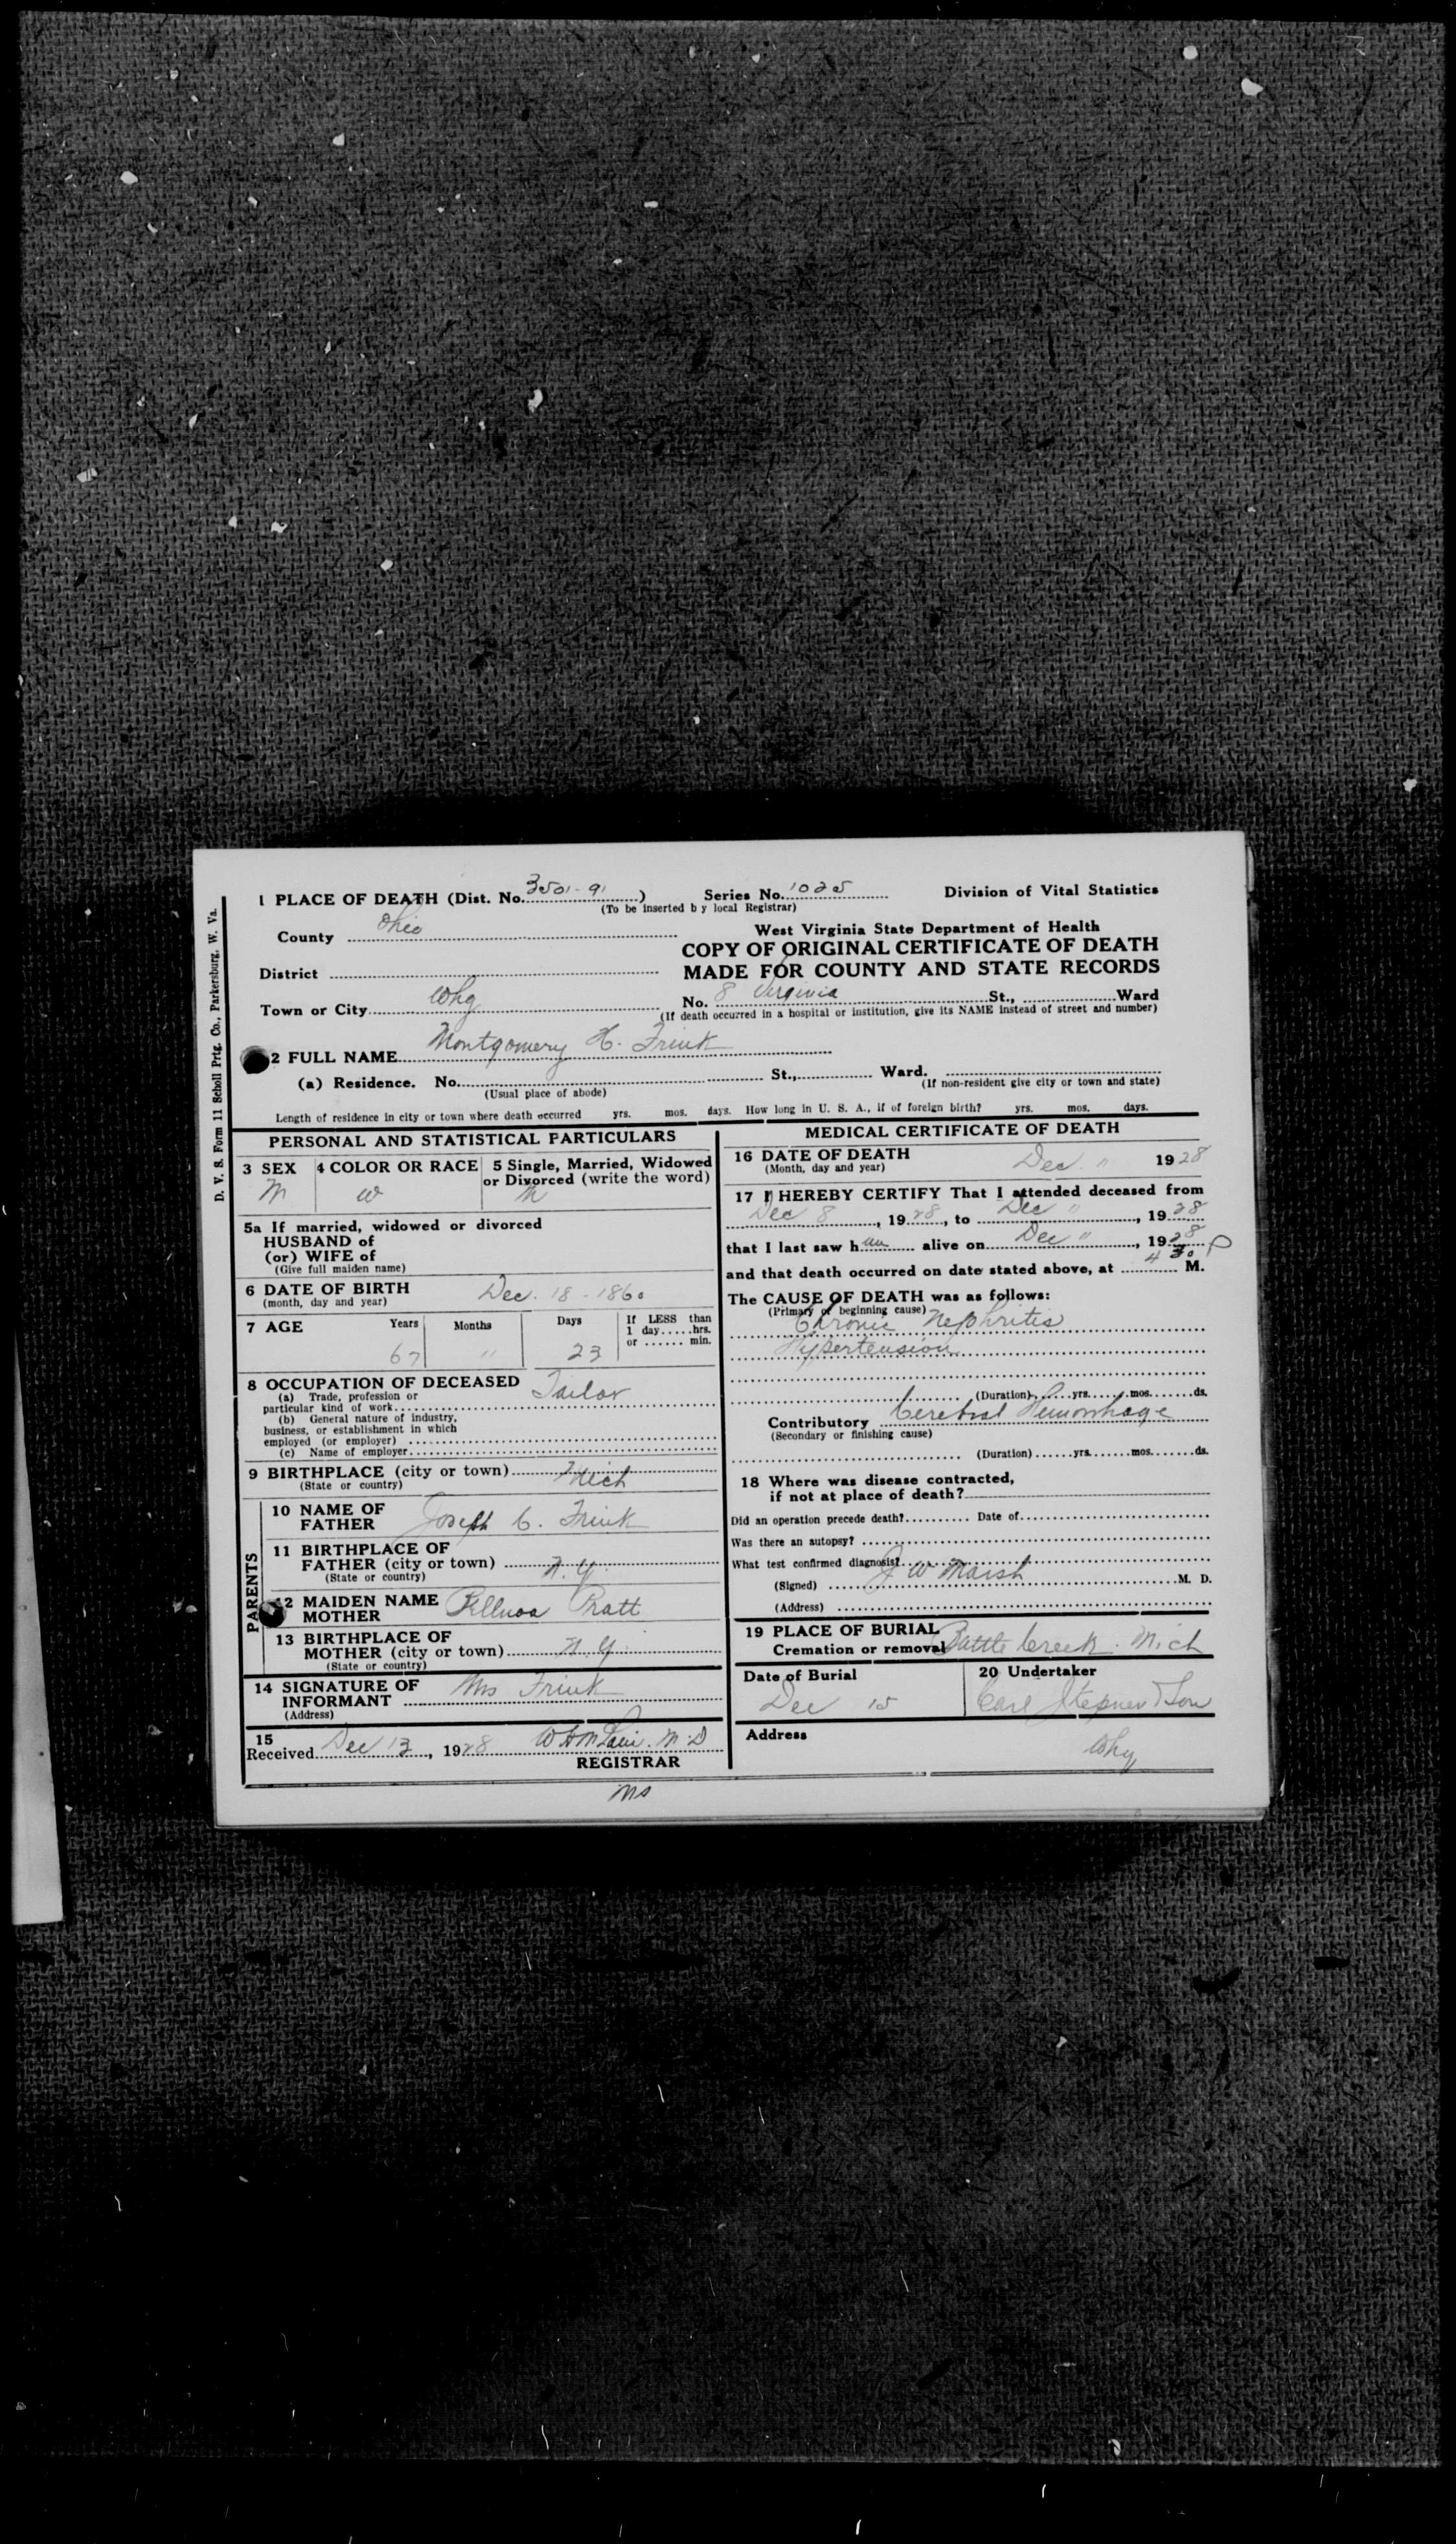 D. V. S. Form 11 Scholl Prtg. Co., Parkersburg, W. Va.
1 PLACE OF DEATH (Dist. No. 3501-91) Series No. 1025 Division of Vital Statistics
(To be inserted by local Registrar)
County Ohio West Virginia State Department of Health
COPY OF ORIGINAL CERTIFICATE OF DEATH
District MADE FOR COUNTY AND STATE RECORDS
Town or City Whg No. 8 Virginia St., Ward
(If death occurred in a hospital or institution, give its NAME instead of street and number)
2 FULL NAME Montgomery H. Frink
(a) Residence. No. St., Ward.
(Usual place of abode) (If non-resident give city or town and state)
Length of residence in city or town where death occurred yrs. mos. days. How long in U. S. A., if of foreign birth? yrs. mos. days.
PERSONAL AND STATISTICAL PARTICULARS
3 SEX 4 COLOR OR RACE 5 Single, Married, Widowed
or Divorced (write the word)
M W M
5a If married, widowed or divorced
HUSBAND of
(or) WIFE of
(Give full maiden name)
6 DATE OF BIRTH Dec. 18 - 1860
(month, day and year)
7 AGE Years Months Days If LESS than
1 day.....hrs.
or ...... min.
67 " 23
8 OCCUPATION OF DECEASED Tailor
(a) Trade, profession or
particular kind of work
(b) General nature of industry,
business, or establishment in which
employed (or employer)
(c) Name of employer
9 BIRTHPLACE (city or town) Mich
(State or country)
PARENTS
10 NAME OF
FATHER Joseph C. Frink
11 BIRTHPLACE OF
FATHER (city or town) N. Y.
(State or country)
12 MAIDEN NAME
MOTHER Pratt
13 BIRTHPLACE OF
MOTHER (city or town) N. Y.
(State or country)
14 SIGNATURE OF
INFORMANT Mrs Frink
(Address)
15
Received Dec 13, 1928 M.D
REGISTRAR
MEDICAL CERTIFICATE OF DEATH
16 DATE OF DEATH Dec. " 1928
(Month, day and year)
17 I HEREBY CERTIFY That I attended deceased from
Dec 8, 1928, to Dec ", 1928
that I last saw him alive on Dec ", 1928
and that death occurred on date stated above, at 4 30 P M.
The CAUSE OF DEATH was as follows:
(Primary of beginning cause)
Chronic Nephritis
Hypertension
(Duration) yrs. mos. ds.
Contributory Cerebral Hemorrhage
(Secondary or finishing cause)
(Duration) yrs. mos. ds.
18 Where was disease contracted,
if not at place of death?
Did an operation precede death? Date of
Was there an autopsy?
What test confirmed diagnosis?
(Signed) J W Marsh M. D.
(Address)
19 PLACE OF BURIAL
Cremation or removal Battle Creek. Mich
Date of Burial 20 Undertaker
Dec 15 Carl Stepner & Son
Address
Whg
ms